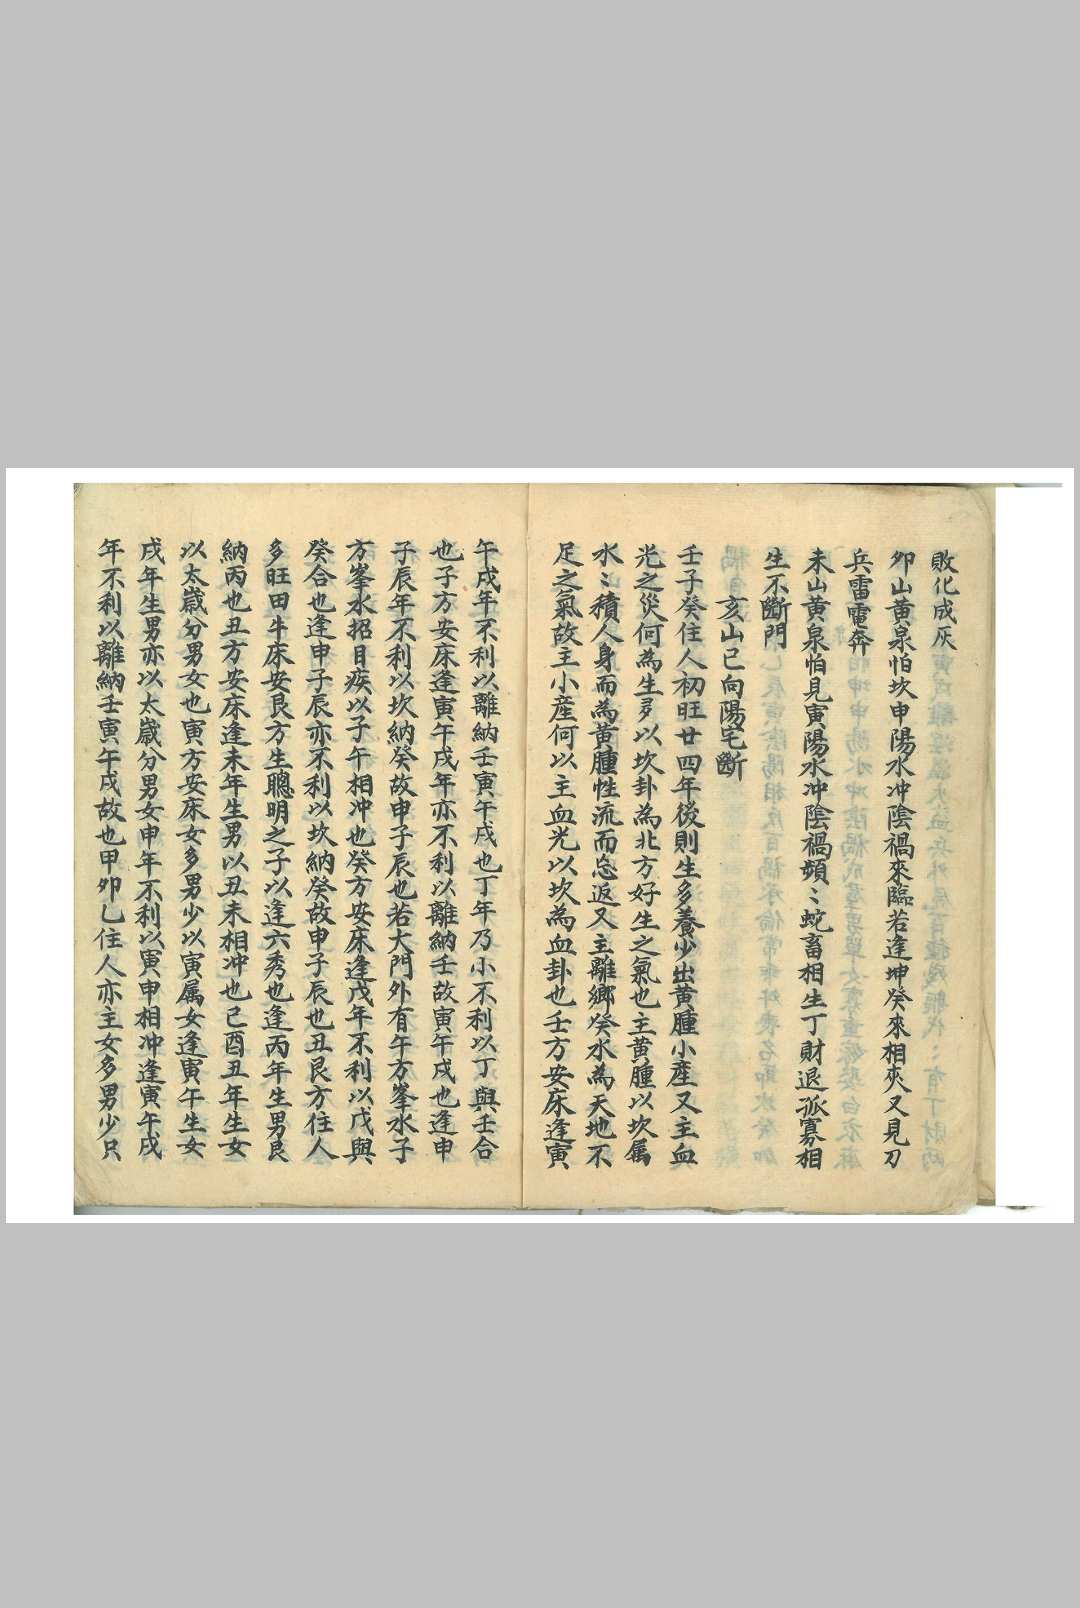 敗化成灰
卯山黃泉怕坎申陽水冲陰禍來臨若逢坤癸來相夾又見刀
兵雷電奔
未山黃泉怕見寅陽水冲陰禍頻〻蛇畜相生丁財退孤寡相
生不斷門
亥山巳向陽宅斷
壬子癸住人初旺廿四年後則生多養少出黃腫小產又主血
光之災何為生多以坎卦為北方好生之氣也主黃腫以坎属
水〻積人身而為黃腫性流而忘返又主離鄉癸水為天地不
足之氣故主小產何以主血光以坎為血卦也壬方安床逢寅
午戌年不利以離納壬寅午戌也丁年乃小不利以丁與壬合
也子方安床逢寅午戌年亦不利以離納壬故寅午戌也逢申
子辰年不利以坎納癸故申子辰也若大門外有午方峯水子
方峯水招目疾以子午相冲也癸方安床逢戊年不利以戊與
癸合也逢申子辰亦不利以坎納癸故申子辰也丑艮方住人
多旺田牛床安艮方生聰明之子以逢六秀也逢丙年生男艮
納丙也丑方安床逢未年生男以丑未相冲也巳酉丑年生女
以太歲分男女也寅方安床女多男少以寅属女逢寅午生女
戌年生男亦以太歲分男女申年不利以寅申相冲逢寅午戌
年不利以離納壬寅午戌故也甲卯乙住人亦主女多男少只